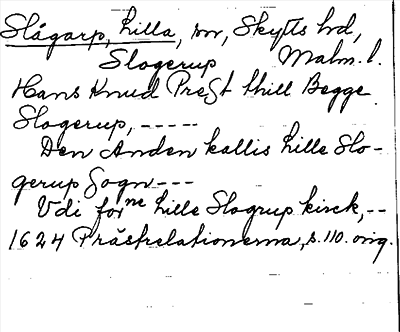 Slågarp, Lilla, sn, Skytts hd,
Slogerup Malm. l.
Hans Knud Prest thill Begge
Slogerup, -----
Den Anden kallis Lille Slo-
gerup Sogn ---
Udi forne Lille Slogrup kirck, --
1624 Prästrelationerna, s. 110. orig.